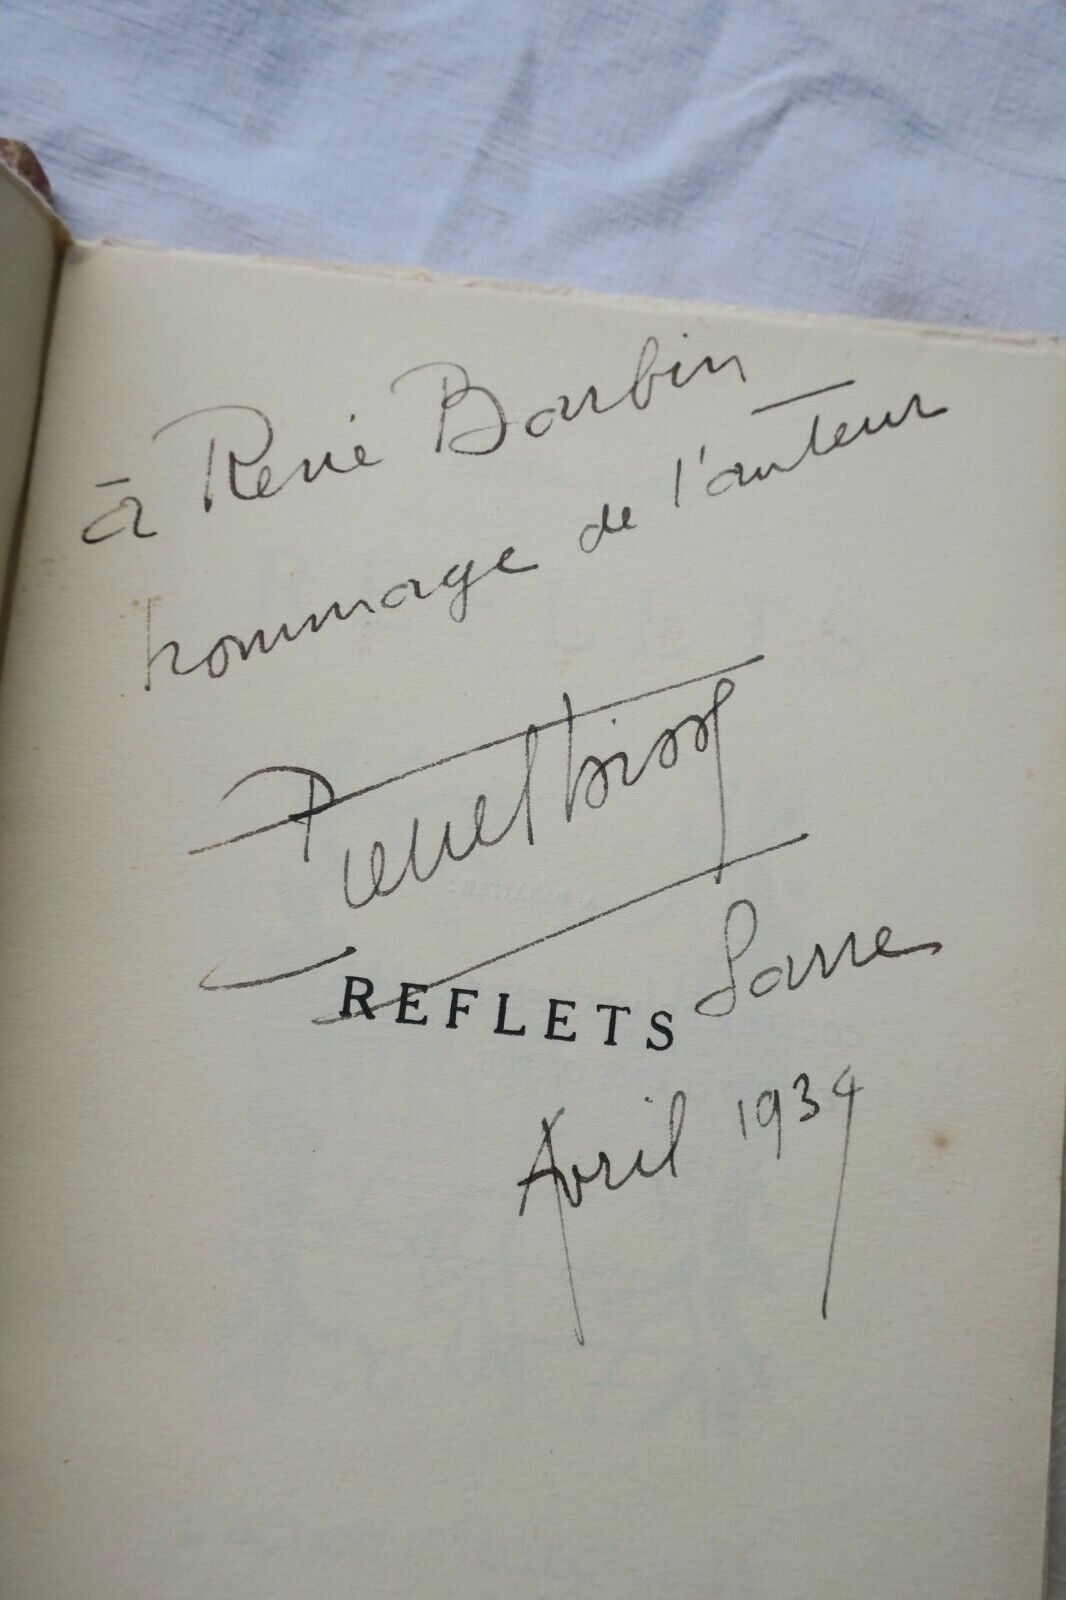 à René Barbin
hommage de l'auteur
REFLETS
Avril 1934